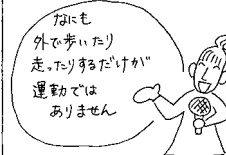 なにも
外で歩いたり
走ったりするだけが
運動では
ありません